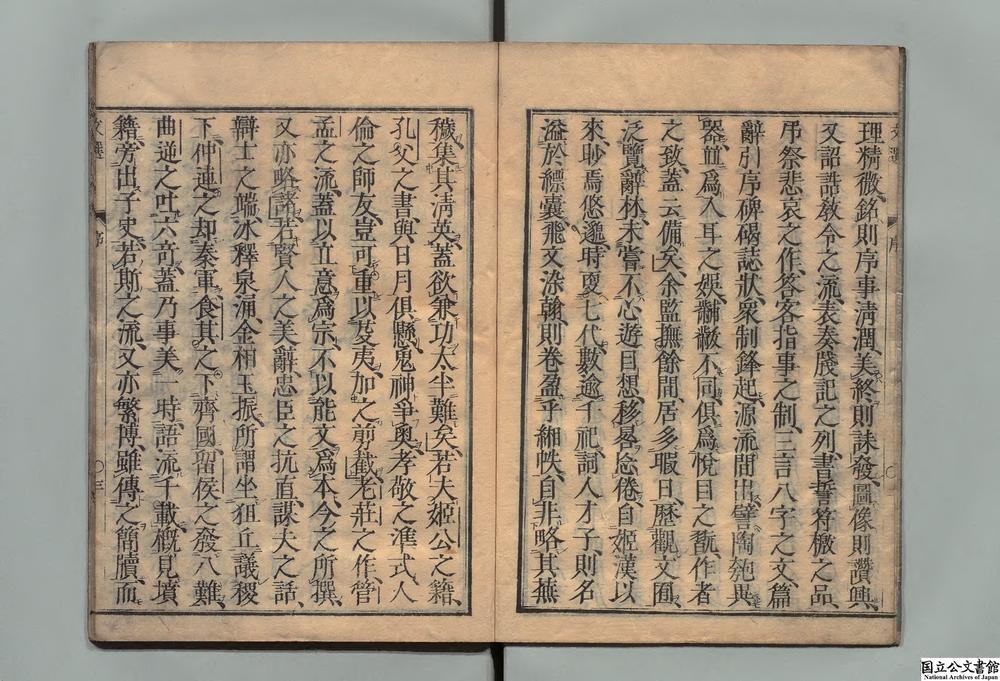 理精微銘則序事淸潤美終則誄發圖像則讚興
又詔誥敎令之流表奏牋記之列書誓符檄之品
弔祭悲哀之作答客指事之制三言八字之文篇
辭引序碑碣誌狀衆制鋒起源流間出譬陶匏異
器並爲入耳之娛黼黻不同俱爲悅目之翫作者
之致蓋云備矣余監撫餘閒居多暇日歷觀文囿
泛覽辭林未嘗不心遊目想移晷忘倦自姬漢以
來眇焉悠邈時更七代數逾千祀詞人才子則名
溢於縹囊飛文染翰則卷盈乎緗帙自非略其蕪
穢集其淸英蓋欲兼功太半難矣若夫姬公之籍
孔父之書與日月俱懸鬼神爭奧孝敬之準式人
倫之師友豈可重以芟夷加之剪截老莊之作管
孟之流蓋以立意爲宗不以能文爲本今之所撰
又亦略諸若賢人之美辭忠臣之抗直謀夫之話
辯士之端冰釋泉涌金相玉振所謂坐狙丘議稷
下仲連之却秦軍食其之下齊國留侯之發八難
曲逆之吐六奇蓋乃事美一時語流千載槪見墳
籍旁出子史若斯之流又亦繁博雖傳之簡牘而
文選
序
〇三
国立公文書館
National Archives of Japan